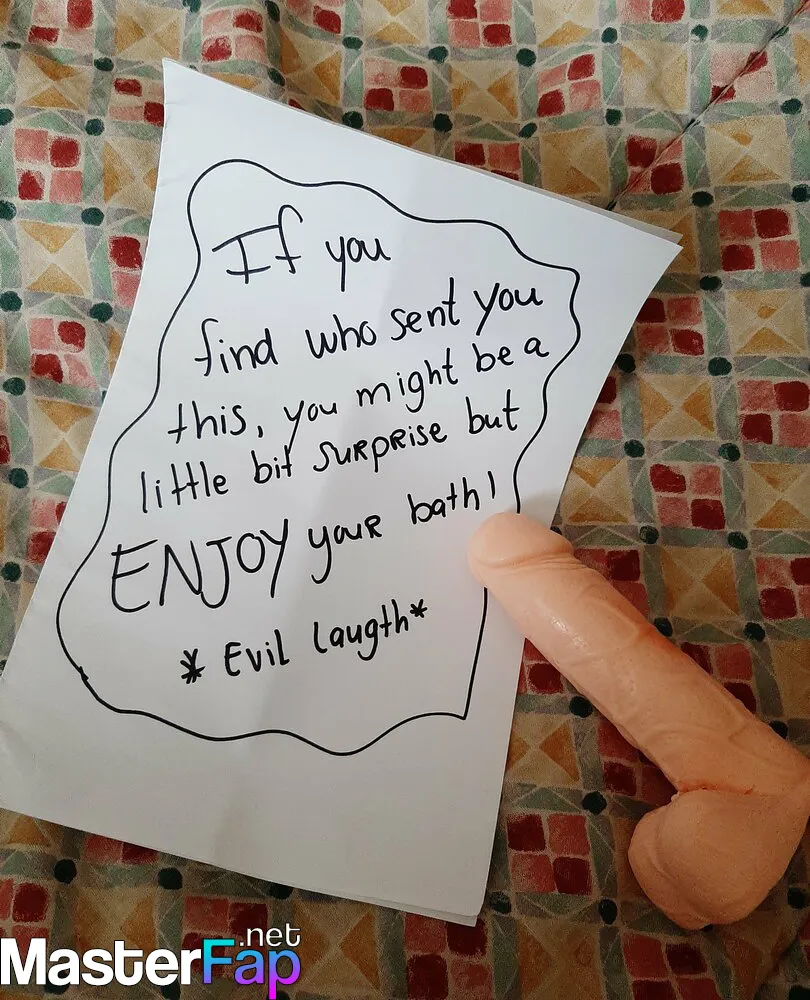 If you
find who sent you
this, you might be a
little bit surprise but
ENJOY your bath!
* Evil laugth*
MasterFap.net